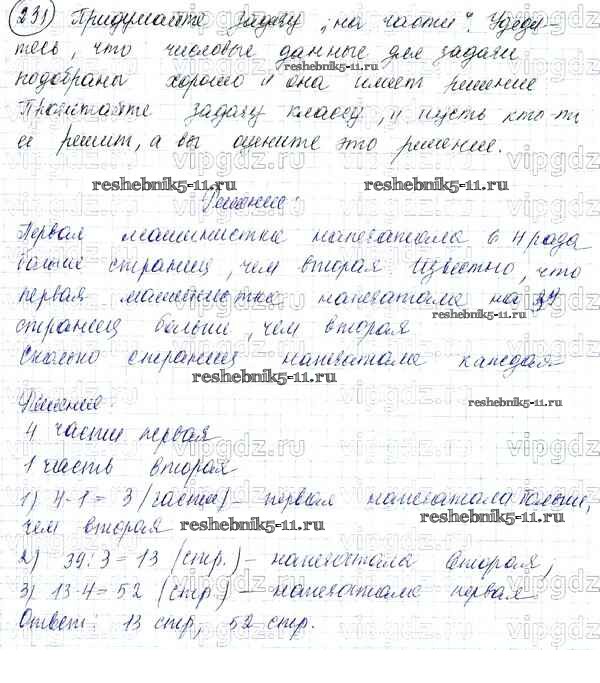 231) Придумайте задачу „на части". Убеди-
тесь, что числовые данные для задачи
подобраны хорошо и она имеет решение
Прочитайте задачу классу, и пусть кто-то
ее решит, а вы оцените это решение.
reshebnik5-11.ru
Решение:
Первая машинистка напечатала в 4 раза
больше страниц, чем вторая Известно, что
первая машинистка напечатала на 39
страниц больше, чем вторая
Сколько страниц напечатала каждая
Решение:
4 части первая
1 часть вторая
1) 4-1 = 3 (части) - первая напечатала больше,
чем вторая
2) 39:3 = 13 (стр.) - напечатала вторая,
3) 13·4 = 52 (стр.) - напечатала первая
Ответ: 13 стр, 52 стр.
vipgdz.ru